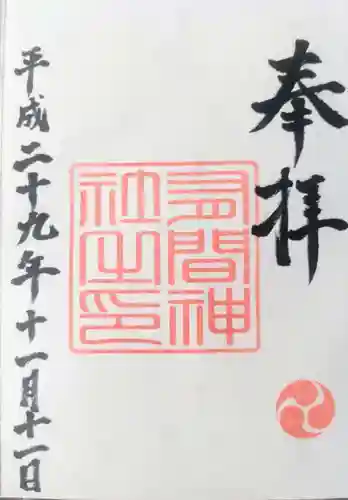 奉拝
有間神社之印
平成二十九年十一月十一日